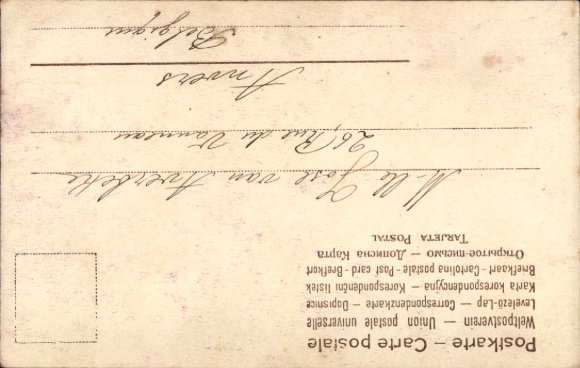 Postkarte — Carte postale
Weltpostverein — Union postale universelle
Levelező-Lap — Correspondenzkarte — Dopisnice
Karta korespondencyjna — Korespondenční listek
Briefkaart - Cartolina postale - Post card - Brefkort
Открытое-письмо — Дописна Карта
TARJETA POSTAL
M-lle Jose van Averbeke
26, Rue du Vanneau
Anvers
Belgique